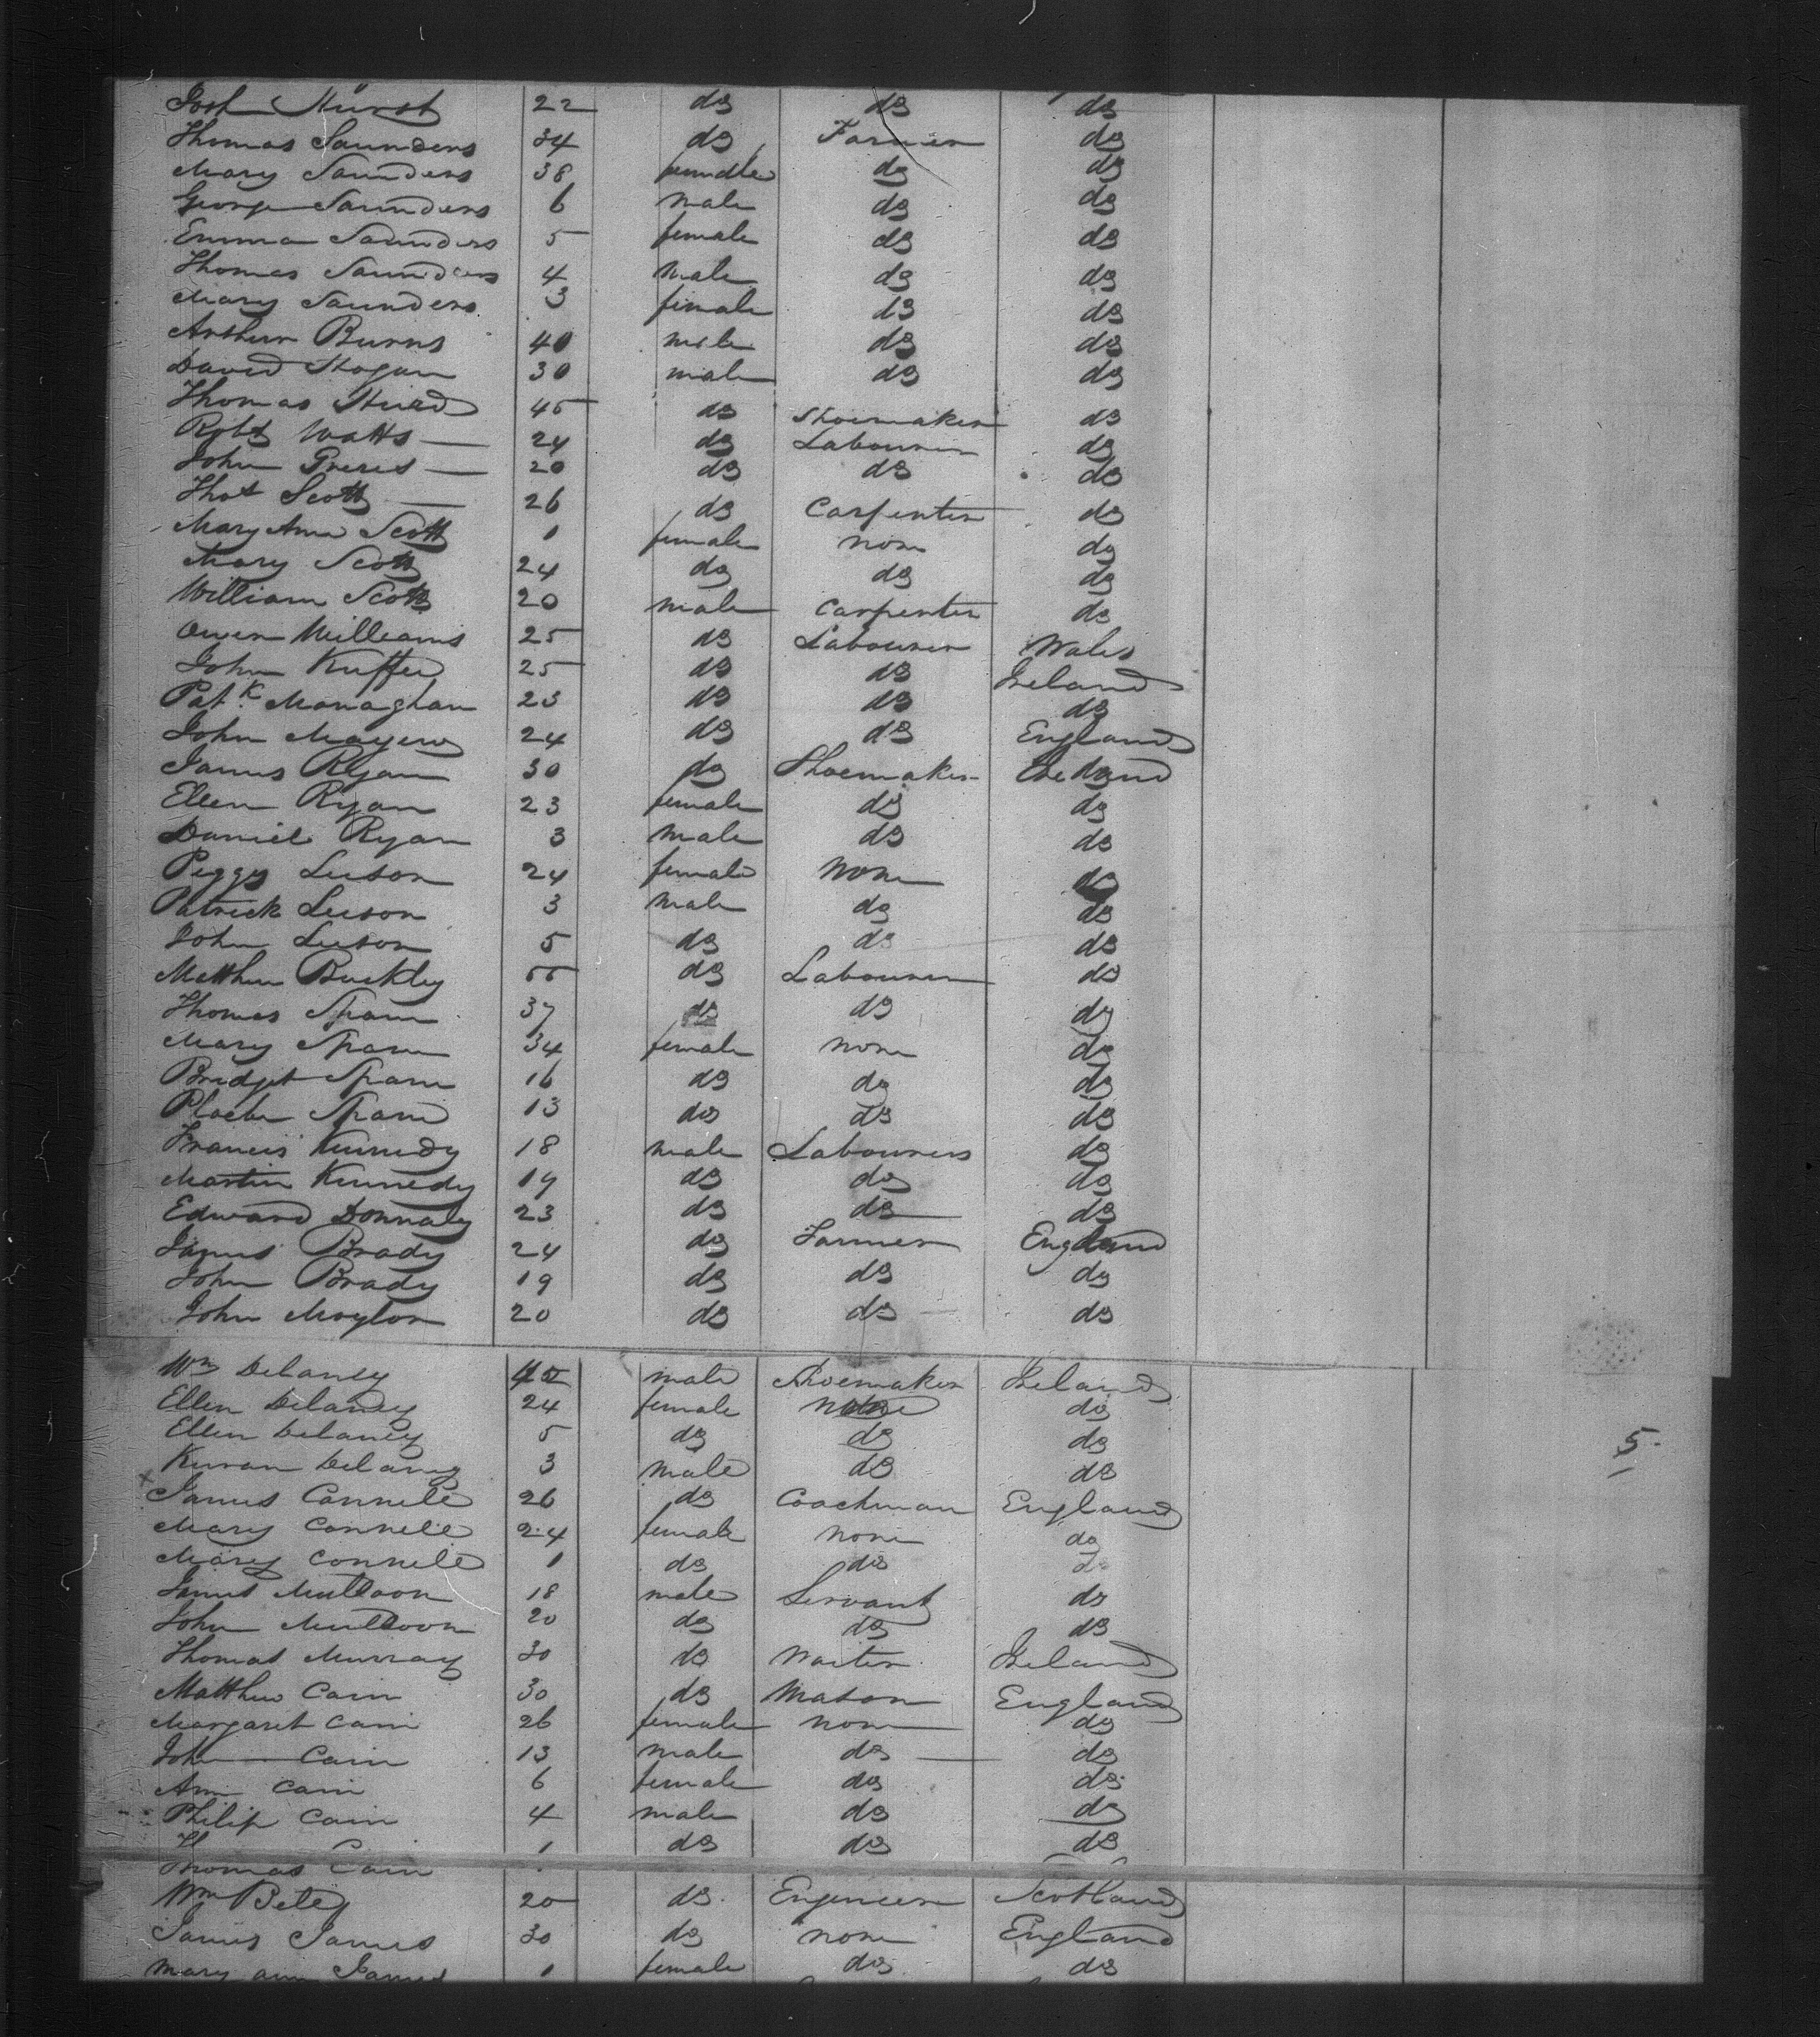 Josh Hurst 22 do do do
Thomas Saunders 34 do Farmer do
Mary Saunders 38 female do do
George Saunders 6 male do do
Emma Saunders 5 female do do
Thomas Saunders 4 male do do
Mary Saunders 3 female do do
Arthur Burns 40 male do do
David Hogan 30 male do do
Thomas Hurd 45 do Shoemaker do
Robt Watts 24 do Labourer do
John 20 do do do
Thos Scott 26 do Carpenter do
Mary Ann Scott 1 female none do
Mary Scott 24 do do do
William Scott 20 male Carpenter do
Owen Williams 25 do Labourer Wales
John 25 do do Ireland
Patk Monaghan 23 do do do
John 24 do do England
James Ryan 30 do Shoemaker Ireland
Ellen Ryan 23 female do do
Daniel Ryan 3 male do do
Peggy Leeson 24 female none do
Patrick Leeson 3 male do do
John Leeson 5 do do do
Matthew Buckley 55 do Labourer do
Thomas Spain 37 do do do
Mary Spain 34 female none do
Bridget Spain 16 do do do
Phoebe Spain 13 do do do
Francis Kennedy 18 male Labourers do
Martin Kennedy 19 do do do
Edward Donnaly 23 do do do
James Brady 24 do Farmer England
John Brady 19 do do do
John Moylon 20 do do do
Wm Delaney 45 male Shoemaker Ireland
Ellen Delaney 24 female none do
Ellen Delaney 5 do do do
5
Kieran Delaney 3 male do do
James Connele 26 do Coachman England
Mary Connele 24 female none do
Mary Connele 1 do do do
James Muldoon 18 male Servant do
John Muldoon 20 do do do
Thomas Murray 30 do Waiter Ireland
Matthew Cain 30 do Mason England
Margaret Cain 26 female none do
John Cain 13 male do do
Ann Cain 6 female do do
Philip Cain 4 male do do
Thomas Cain 1 do do do
Wm 20 do Engeneer Scotland
James James 30 do none England
Mary ann James 1 female do do